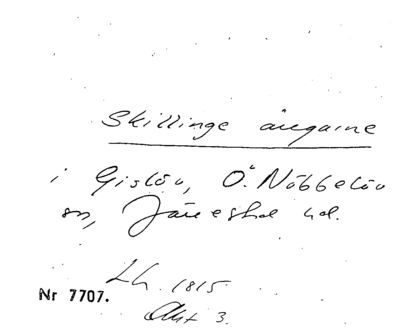 Skillinge ängarne
i Gislöv, Ö. Nöbbelöv
sn, Järrestad hd.
Lh. 1815
Nr 7707.
Akt 3.